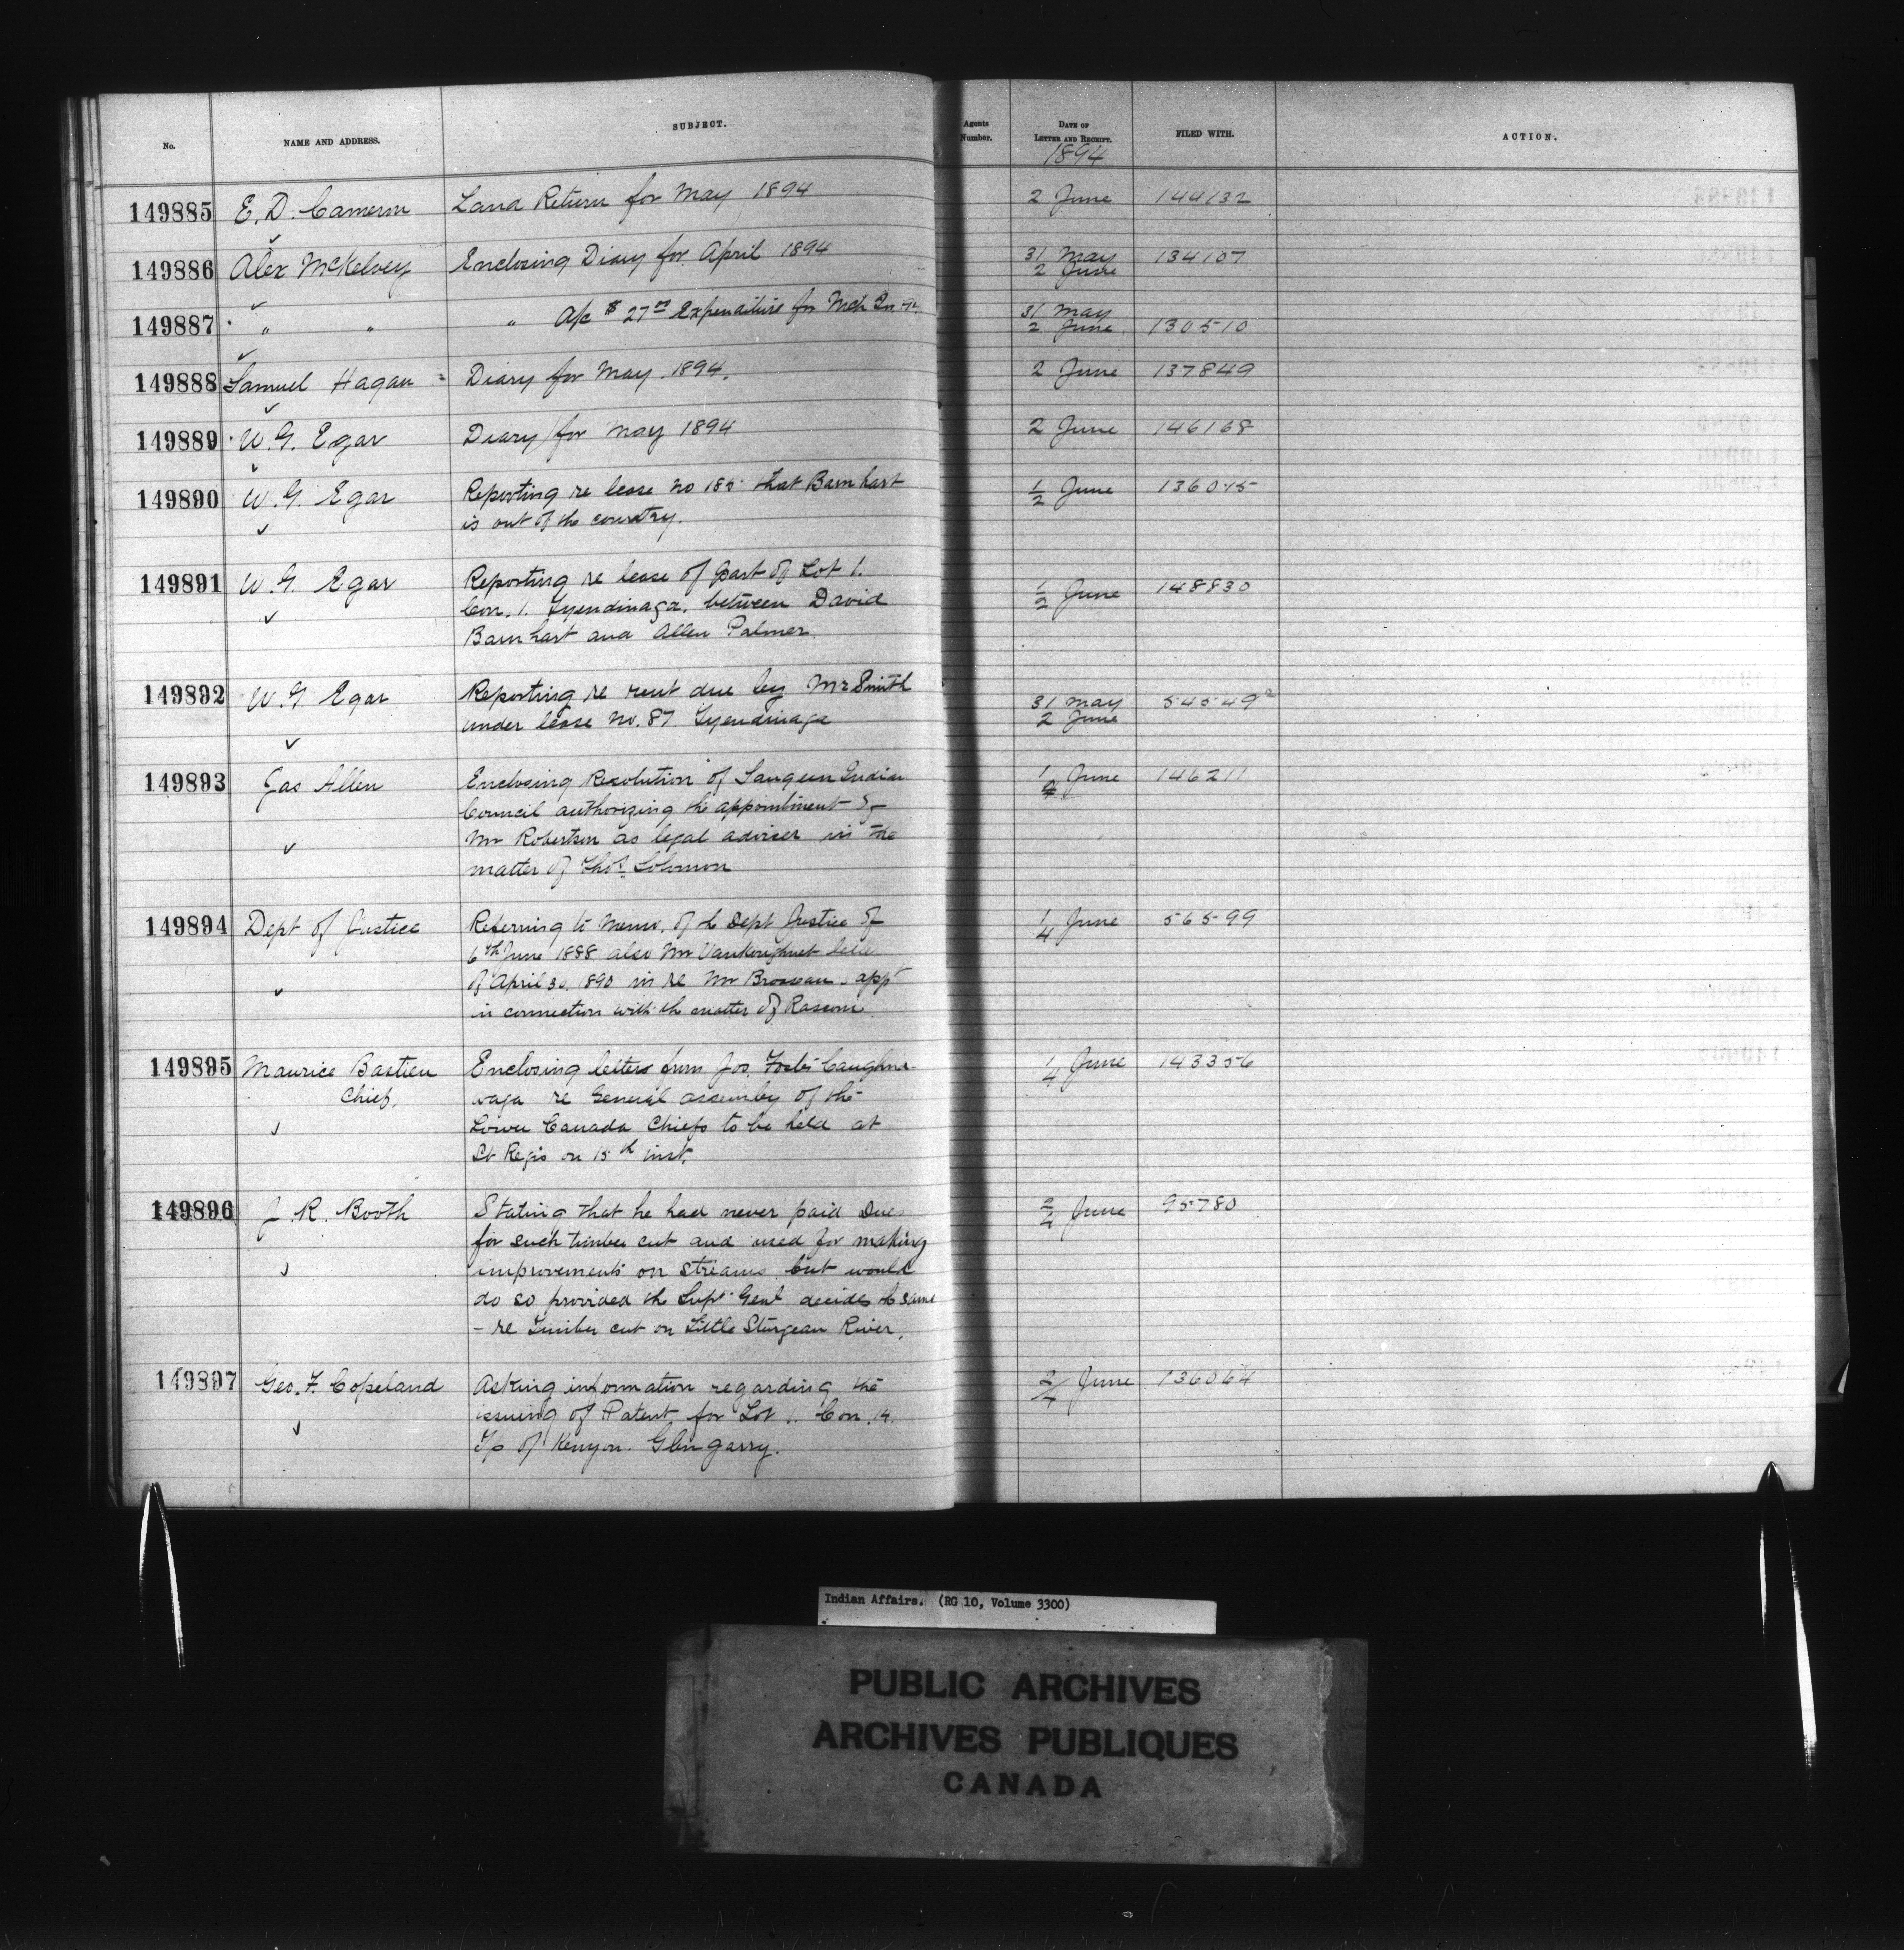 No. NAME AND ADDRESS. SUBJECT. Agents Number. DATE OF LETTER AND RECEIPT. FILED WITH. ACTION.
1894
149885 E. D. Cameron Land Return for May 1894 2 June 144132
149886 Alex McKelvey Enclosing Diary for April 1894 31 May 134107
2 June
149887 " " " A/c $ 27 Expenditure for Mch 31 May
2 June 130510
149888 Samuel Hagan Diary for May 1894. 2 June 137849
149889 W. G. Egar Diary for May 1894 2 June 146168
149890 W. G. Egar Reporting re lease no 185 that Barnhart 1/2 June 136045
is out of the country.
149891 W. G. Egar Reporting re lease of part of Lot 1. 1/2 June 148830
Con. 1. Tyendinaga. between David
Barnhart and Allen Palmer.
149892 W. G Egar Reporting re rent due by Mr Smith 31 May 54549²
under lease No. 87 Tyendinaga 2 June
149893 Jas Allen Enclosing Resolution of Saugeen Indian 1 June 146211
Council authorizing the appointment of
Mr Robertson as legal adviser in the
matter of Thos. Solomon
149894 Dept of Justice Referring to Memo. of the Dept Justice of 1/4 June 56599
6th June 1888 also Mr Vankoughnet
of April 30, 1890 in re Mr Brosseau appt
in connection with the matter of
149895 Maurice Bastien Enclosing letters from Jos. Caughna- 1/4 June 143356
Chief. waga re General assembly of the
Lower Canada Chiefs to be held at
St Regis on 15th inst.
149896 J. R. Booth Stating that he had never paid Dues 2/4 June 95780
for such timber cut and used for making
improvements on streams but would
do so provided the Supt Genl decides the same
- re timber cut on Little Sturgeon River.
149897 Geo. F. Copeland Asking information regarding the 2/4 June 136064
issuing of Patent for Lot 1. Con. 14.
Tp of Kenyon. Glengarry.
Indian Affairs. (RG 10, Volume 3300)
PUBLIC ARCHIVES
ARCHIVES PUBLIQUES
CANADA